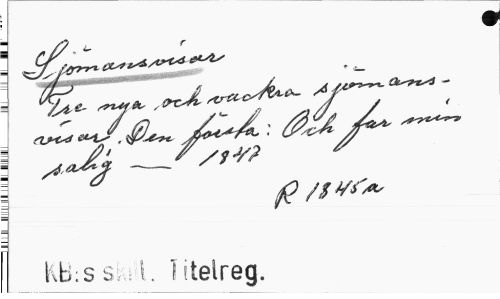 Sjömansvisor
Tre nya och vackra sjömans-
visor. Den första: Och far min
salig — 1847
R 1845a
KB:s skill. Titelreg.